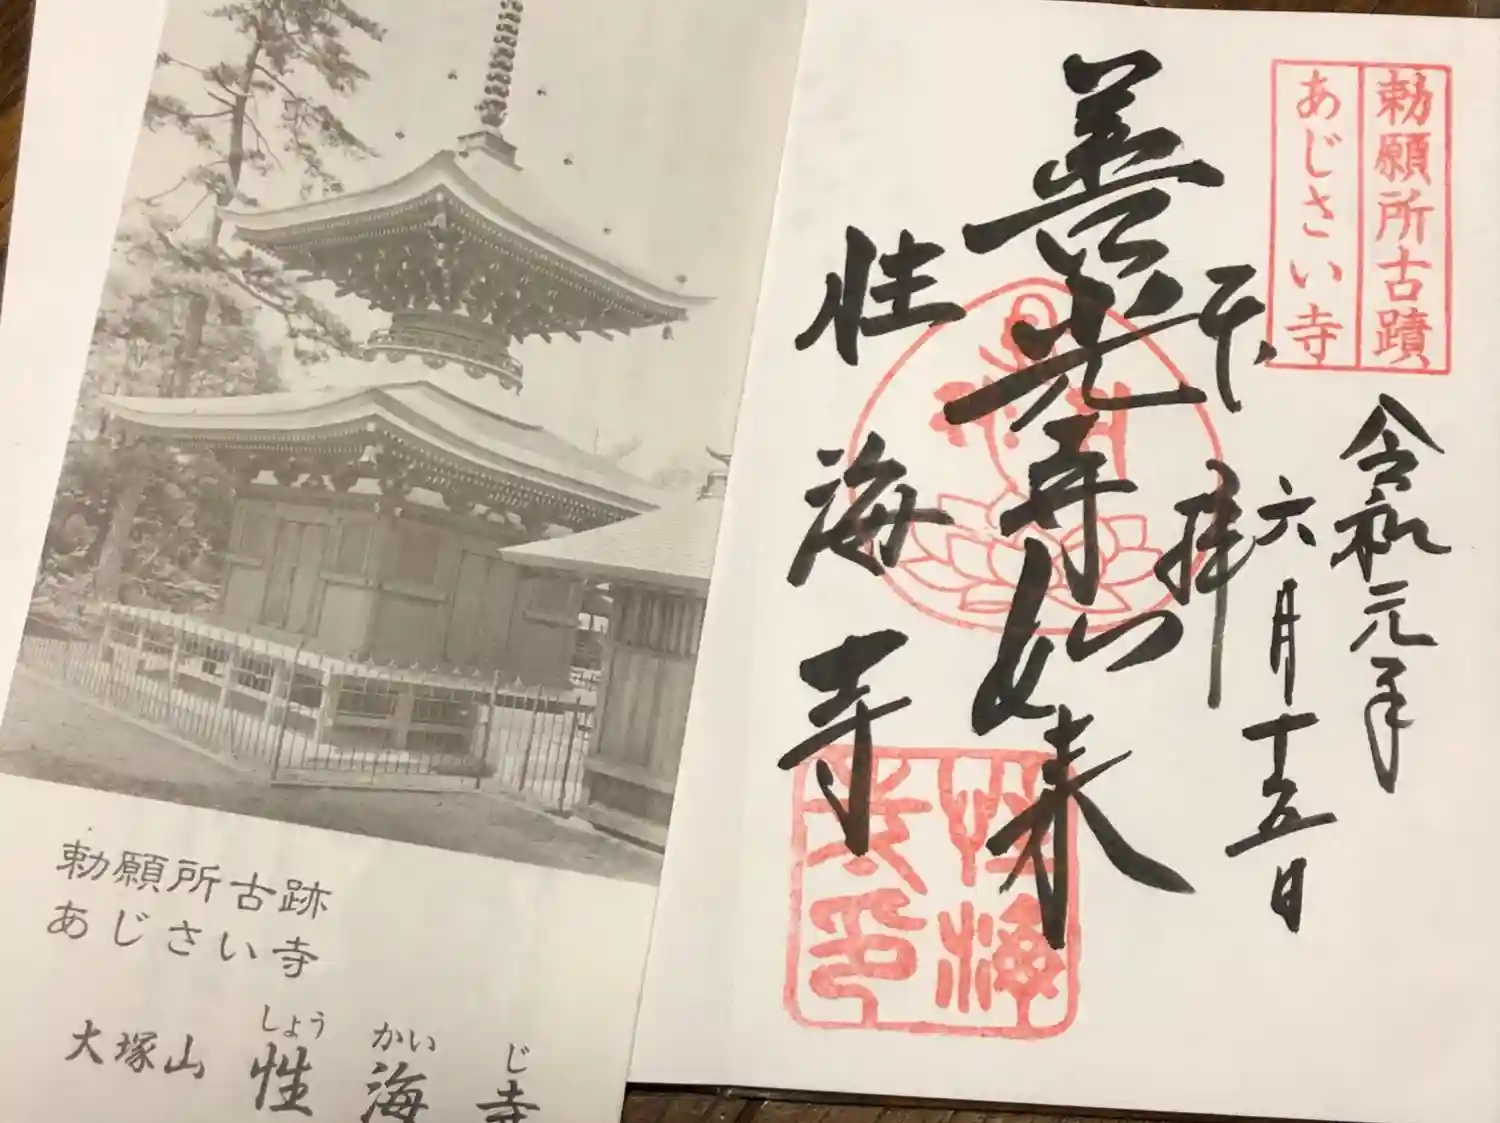 勅願所古跡
あじさい寺
大塚山
しょう かい じ
性海寺
勅願所古蹟
あじさい寺
令和元年
六月十五日
奉拝
善光寺如来
性海寺
性海
寺印